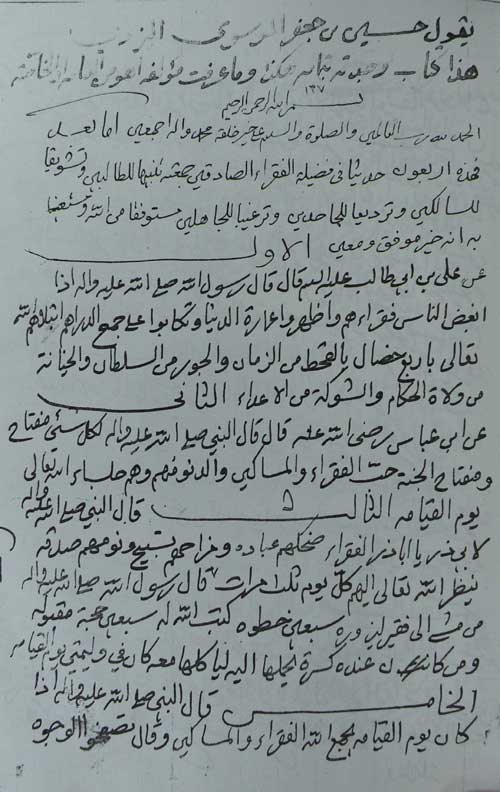 يقول حسين بن جعفر الموسوي
هذا كتاب وجدته بتمامه هكذا وما عرفت مؤلفه أهو من العامة أو الخاصة
١٣٧
بسم الله الرحمن الرحيم
الحمد لله رب العالمين والصلوة والسلام على خير خلقه محمد واله اجمعين اما بعد
فهذه اربعون حديثا في فضيلة الفقراء الصادقين جمعته تنبيها للطالبين وتشويقا
للسالكين وترديعا للجاحدين وترغيبا للجاهلين مستوفقا من الله ومستعينا
به انه خير موفق ومعين الاول
عن علي بن ابي طالب عليه السلم قال قال رسول الله صلى الله عليه واله اذا
ابغض الناس فقراءهم واظهروا عمارة الدنيا وتكالبوا على جمع الدراهم ابتلاهم الله
تعالى باربع خصال بالقحط من الزمان والجور من السلطان والخيانة
من ولاة الحكام والشوكة من الاعداء الثاني
عن ابن عباس رضي الله عنه قال قال النبي صلى الله عليه واله لكل شيء مفتاح
ومفتاح الجنة حب الفقراء والمساكين والدنو منهم وهم جلساء الله تعالى
يوم القيامه الثالث قال النبي صلى الله عليه واله
لابي ذر يا اباذر الفقراء ضحكهم عباده ومزاحهم تسبيح ونومهم صدقه
ينظر الله تعالى اليهم كل يوم ثلث مرات قال رسول الله صلى الله عليه واله
من مشى الى فقير ليزوره سبعين خطوه كتب الله له سبعين حجة مقبوله
ومن كانت عنده كسرة يحملها اليه ليأكلها معه كان في يوم القيامه
الخامس قال النبي صلى الله عليه واله اذا
كان يوم القيامه يجمع الله الفقراء والمساكين وقال تصفحوا الوجوه